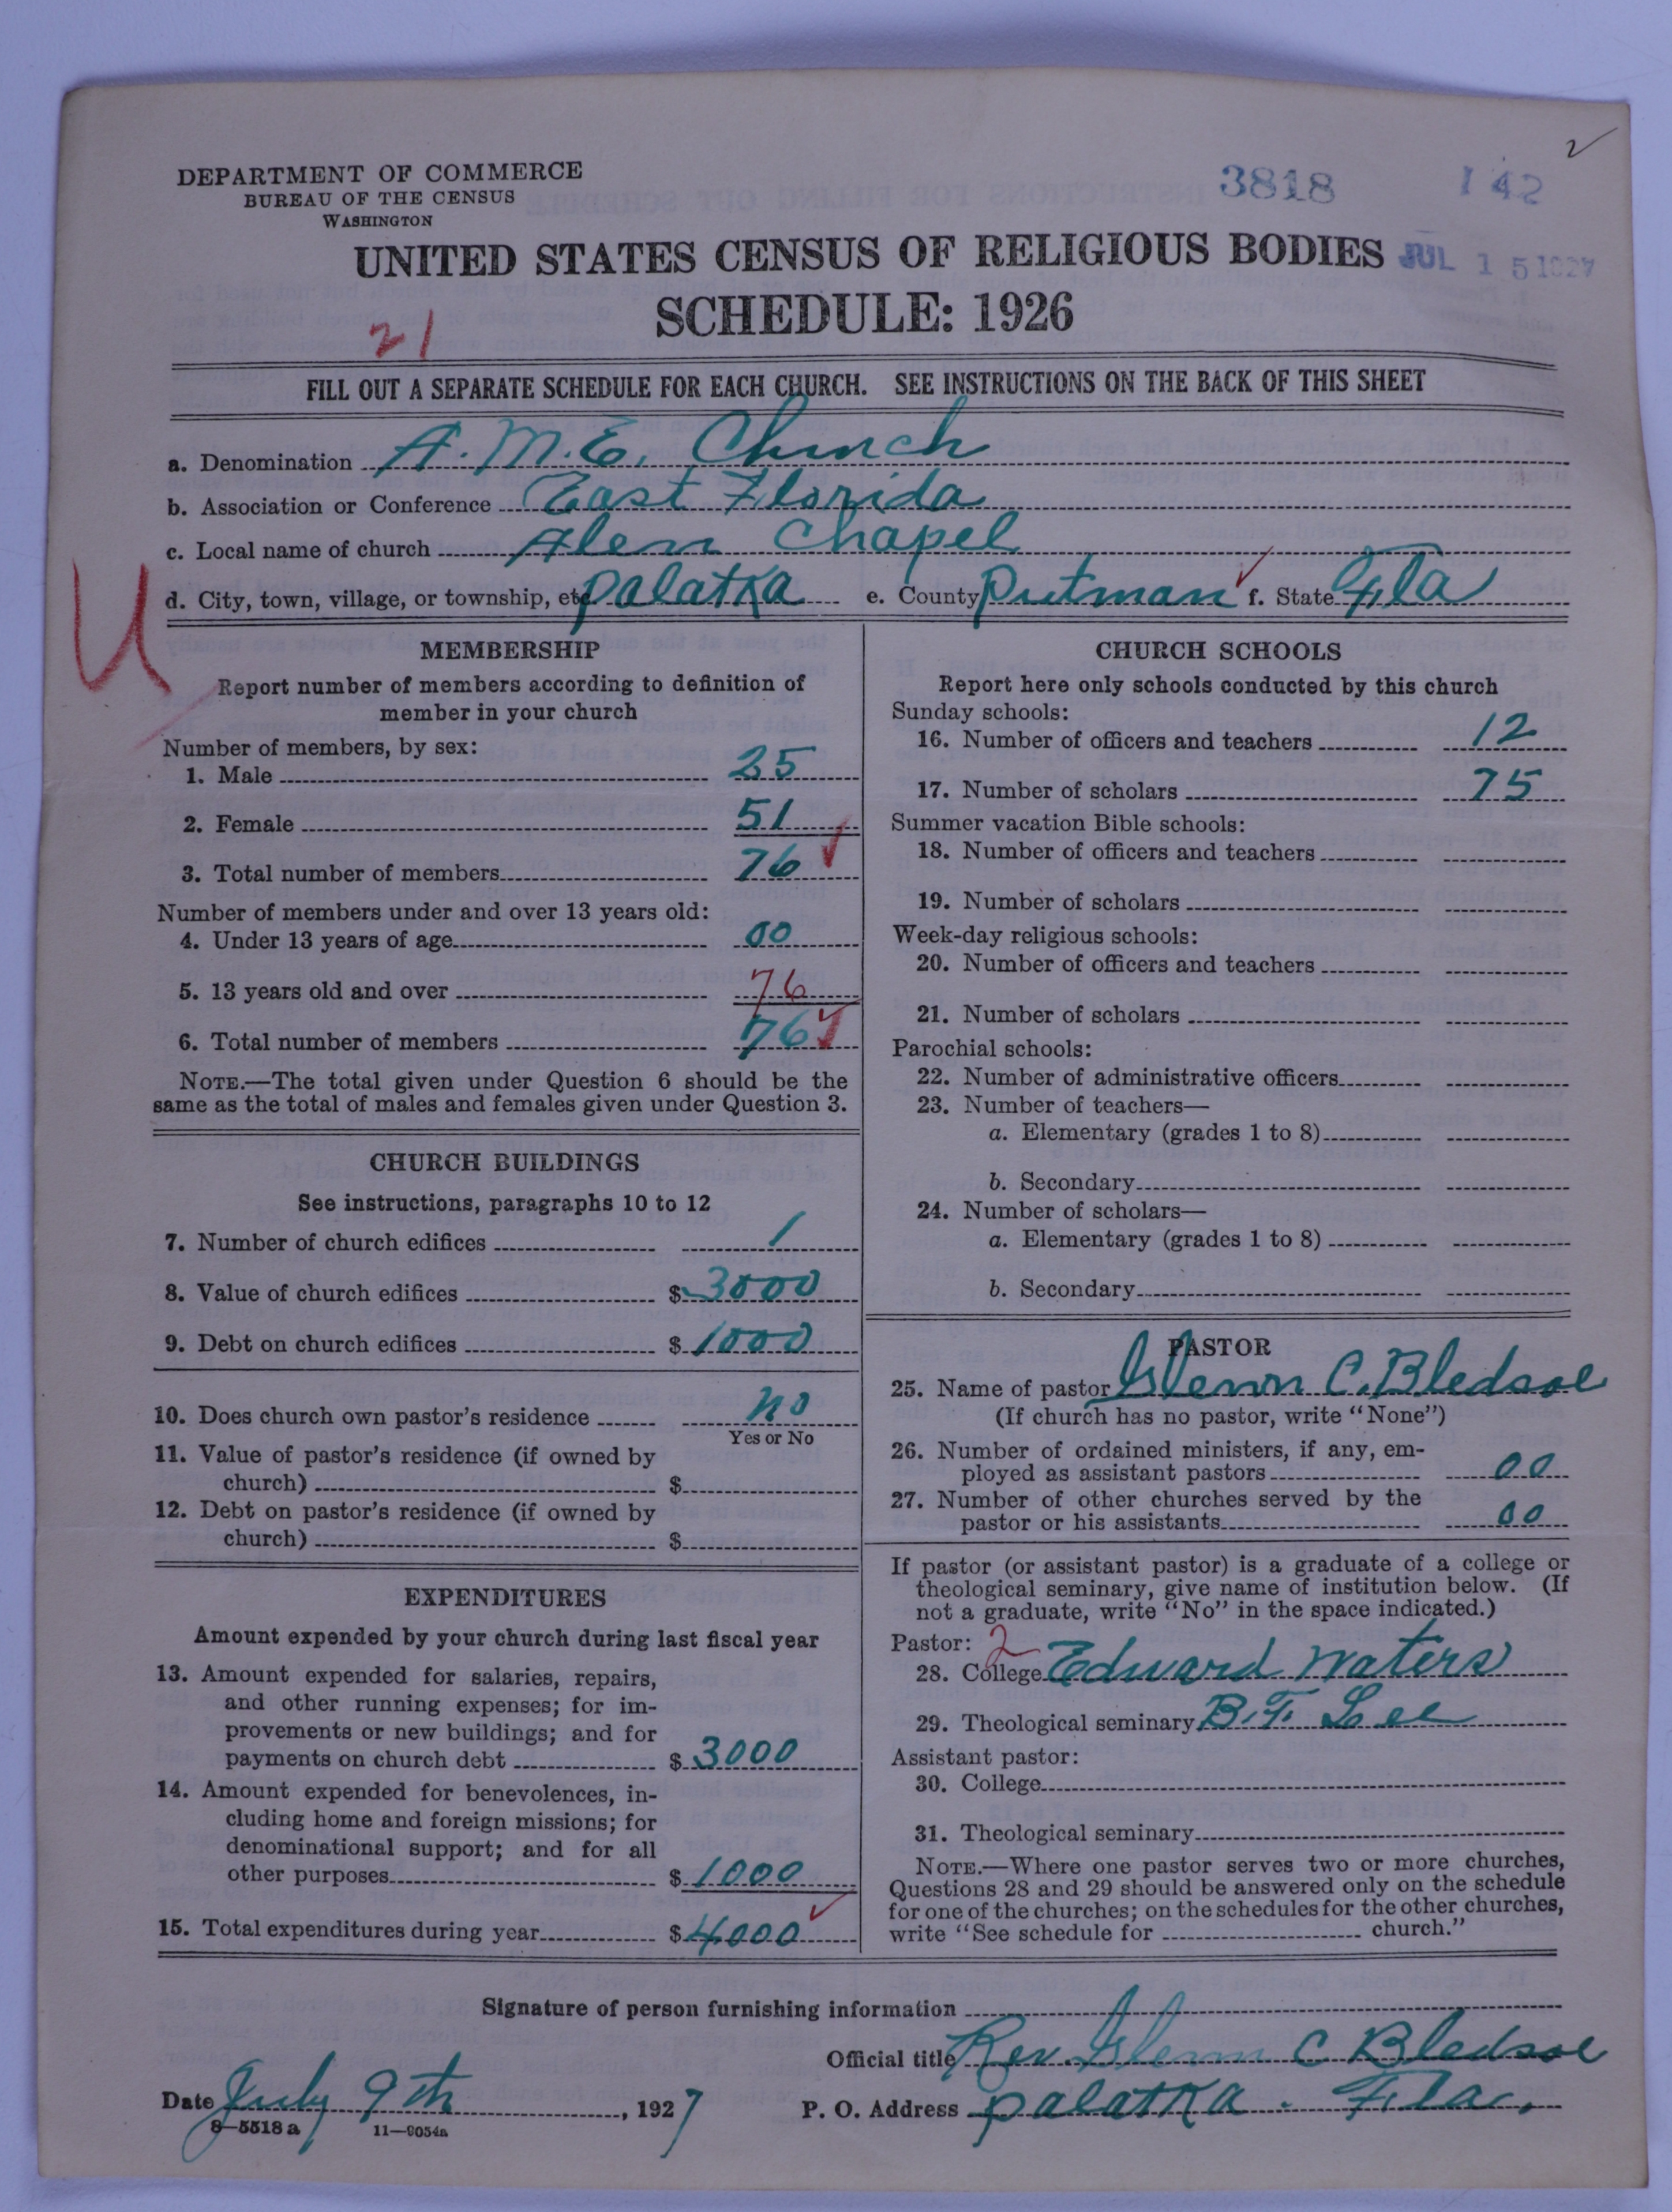 2
DEPARTMENT OF COMMERCE
BUREAU OF THE CENSUS
WASHINGTON
3818
142
UNITED STATES CENSUS OF RELIGIOUS BODIES
JUL 15 1927
SCHEDULE: 1926
21
FILL OUT A SEPARATE SCHEDULE FOR EACH CHURCH. SEE INSTRUCTIONS ON THE BACK OF THIS SHEET
a. Denomination A. M. E. Church
b. Association or Conference East Florida
c. Local name of church Alen Chapel
d. City, town, village, or township, etc. Palatka e. County Putman f. State Fla
U
MEMBERSHIP
Report number of members according to definition of
member in your church
Number of members, by sex:
1. Male 25
2. Female 51
3. Total number of members 76
Number of members under and over 13 years old:
4. Under 13 years of age 00
5. 13 years old and over 76
6. Total number of members 76
NOTE.—The total given under Question 6 should be the
same as the total of males and females given under Question 3.
CHURCH BUILDINGS
See instructions, paragraphs 10 to 12
7. Number of church edifices 1
8. Value of church edifices $ 3000
9. Debt on church edifices $ 1000
10. Does church own pastor's residence no
Yes or No
11. Value of pastor's residence (if owned by
church) $
12. Debt on pastor's residence (if owned by
church) $
EXPENDITURES
Amount expended by your church during last fiscal year
13. Amount expended for salaries, repairs,
and other running expenses; for im-
provements or new buildings; and for
payments on church debt $ 3000
14. Amount expended for benevolences, in-
cluding home and foreign missions; for
denominational support; and for all
other purposes $ 1000
15. Total expenditures during year $ 4000
CHURCH SCHOOLS
Report here only schools conducted by this church
Sunday schools:
16. Number of officers and teachers 12
17. Number of scholars 75
Summer vacation Bible schools:
18. Number of officers and teachers
19. Number of scholars
Week-day religious schools:
20. Number of officers and teachers
21. Number of scholars
Parochial schools:
22. Number of administrative officers
23. Number of teachers—
a. Elementary (grades 1 to 8)
b. Secondary
24. Number of scholars—
a. Elementary (grades 1 to 8)
b. Secondary
PASTOR
25. Name of pastor Glenn C. Bledsoe
(If church has no pastor, write "None")
26. Number of ordained ministers, if any, em-
ployed as assistant pastors 00
27. Number of other churches served by the
pastor or his assistants 00
If pastor (or assistant pastor) is a graduate of a college or
theological seminary, give name of institution below. (If
not a graduate, write "No" in the space indicated.)
Pastor: 2
28. College Edward Waters
29. Theological seminary B. F. Lee
Assistant pastor:
30. College
31. Theological seminary
NOTE.—Where one pastor serves two or more churches,
Questions 28 and 29 should be answered only on the schedule
for one of the churches; on the schedules for the other churches,
write "See schedule for church."
Signature of person furnishing information
Official title Rev. Glenn C Bledsoe
Date July 9th, 1927 P. O. Address Palatka. Fla.
8—5518 a 11—9054a